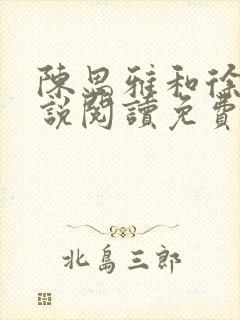 陳思雅和徐
說閱讀免費
北島三郎